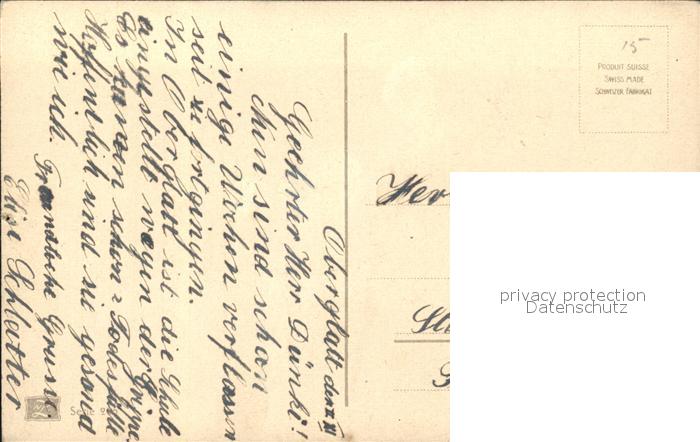 Oberglatt den XI
Geehrter Herr Dünki!
chen sind schon
einige Wochen verflossen
seit sie fortgingen.
In Oberglatt ist die Schule
eingestellt wegen der Grippe.
Es kamen schon 2 Todesfälle
Hoffentlich sind sie gesund
wie ich. Freundliche Grüsse
Elise Schlatter
15
PRODUIT SUISSE
SWISS MADE
SCHWEIZER FABRIKAT
Her
Serie
privacy protection
Datenschutz